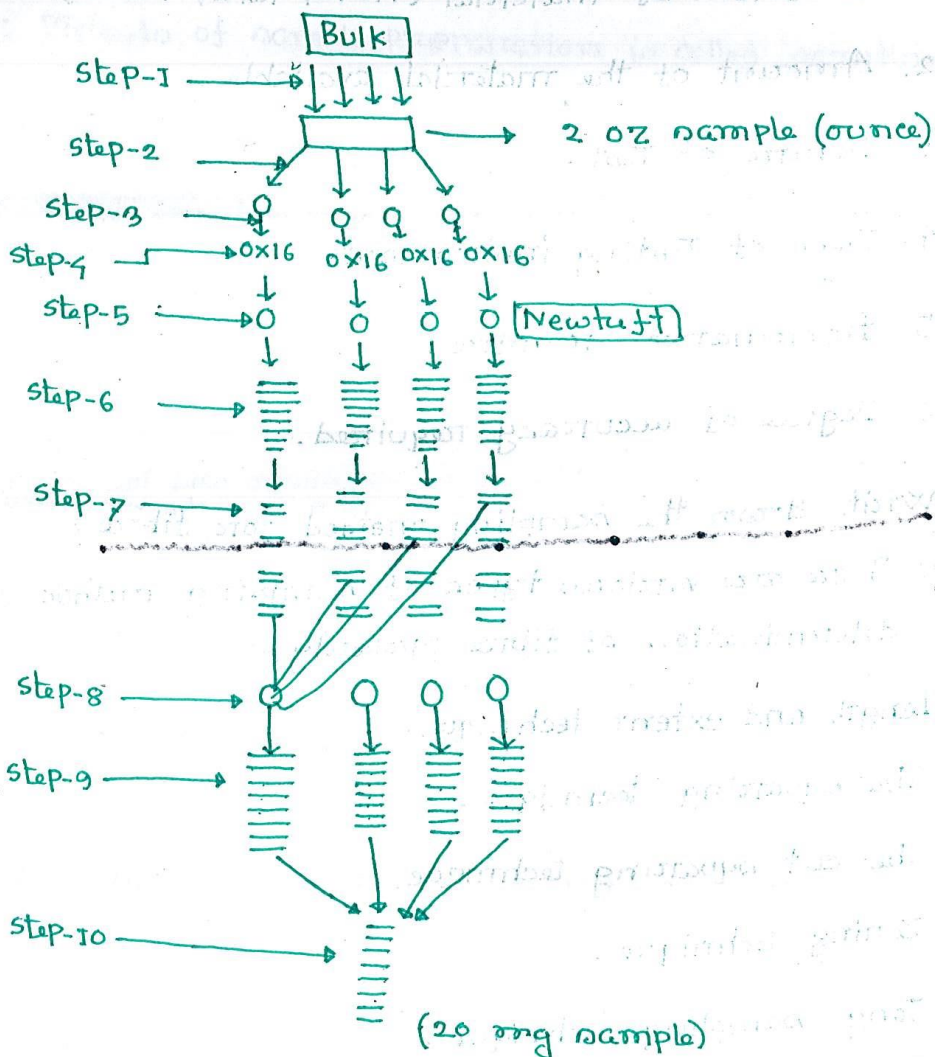 Bulk
Step-I
2 oz sample (ounce)
Step-2
Step-3
Step-4
0x16 0x16 0x16 0x16
Step-5
Newtuft
Step-6
Step-7
Step-8
Step-9
Step-10
(20 mg sample)